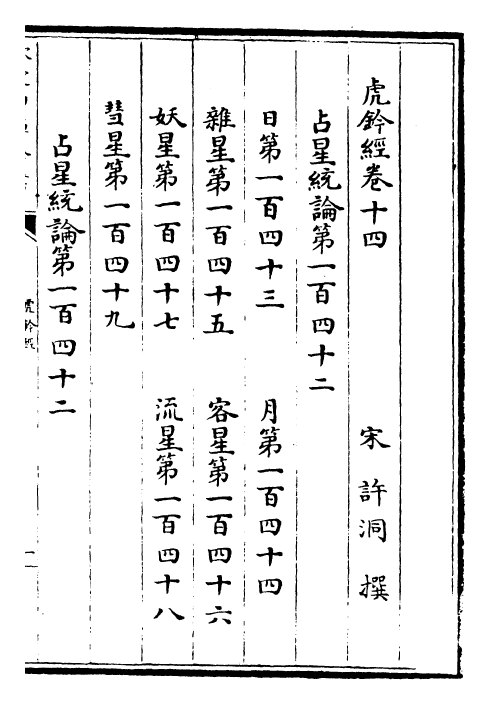 虎鈐經卷十四
宋 許洞 撰
占星統論第一百四十二
日第一百四十三
月第一百四十四
雜星第一百四十五
客星第一百四十六
妖星第一百四十七
流星第一百四十八
彗星第一百四十九
占星統論第一百四十二
虎鈐經